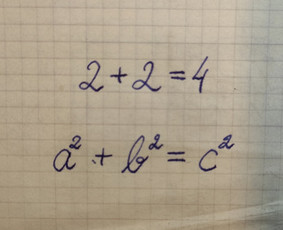 2 + 2 = 4
a² + b² = c²